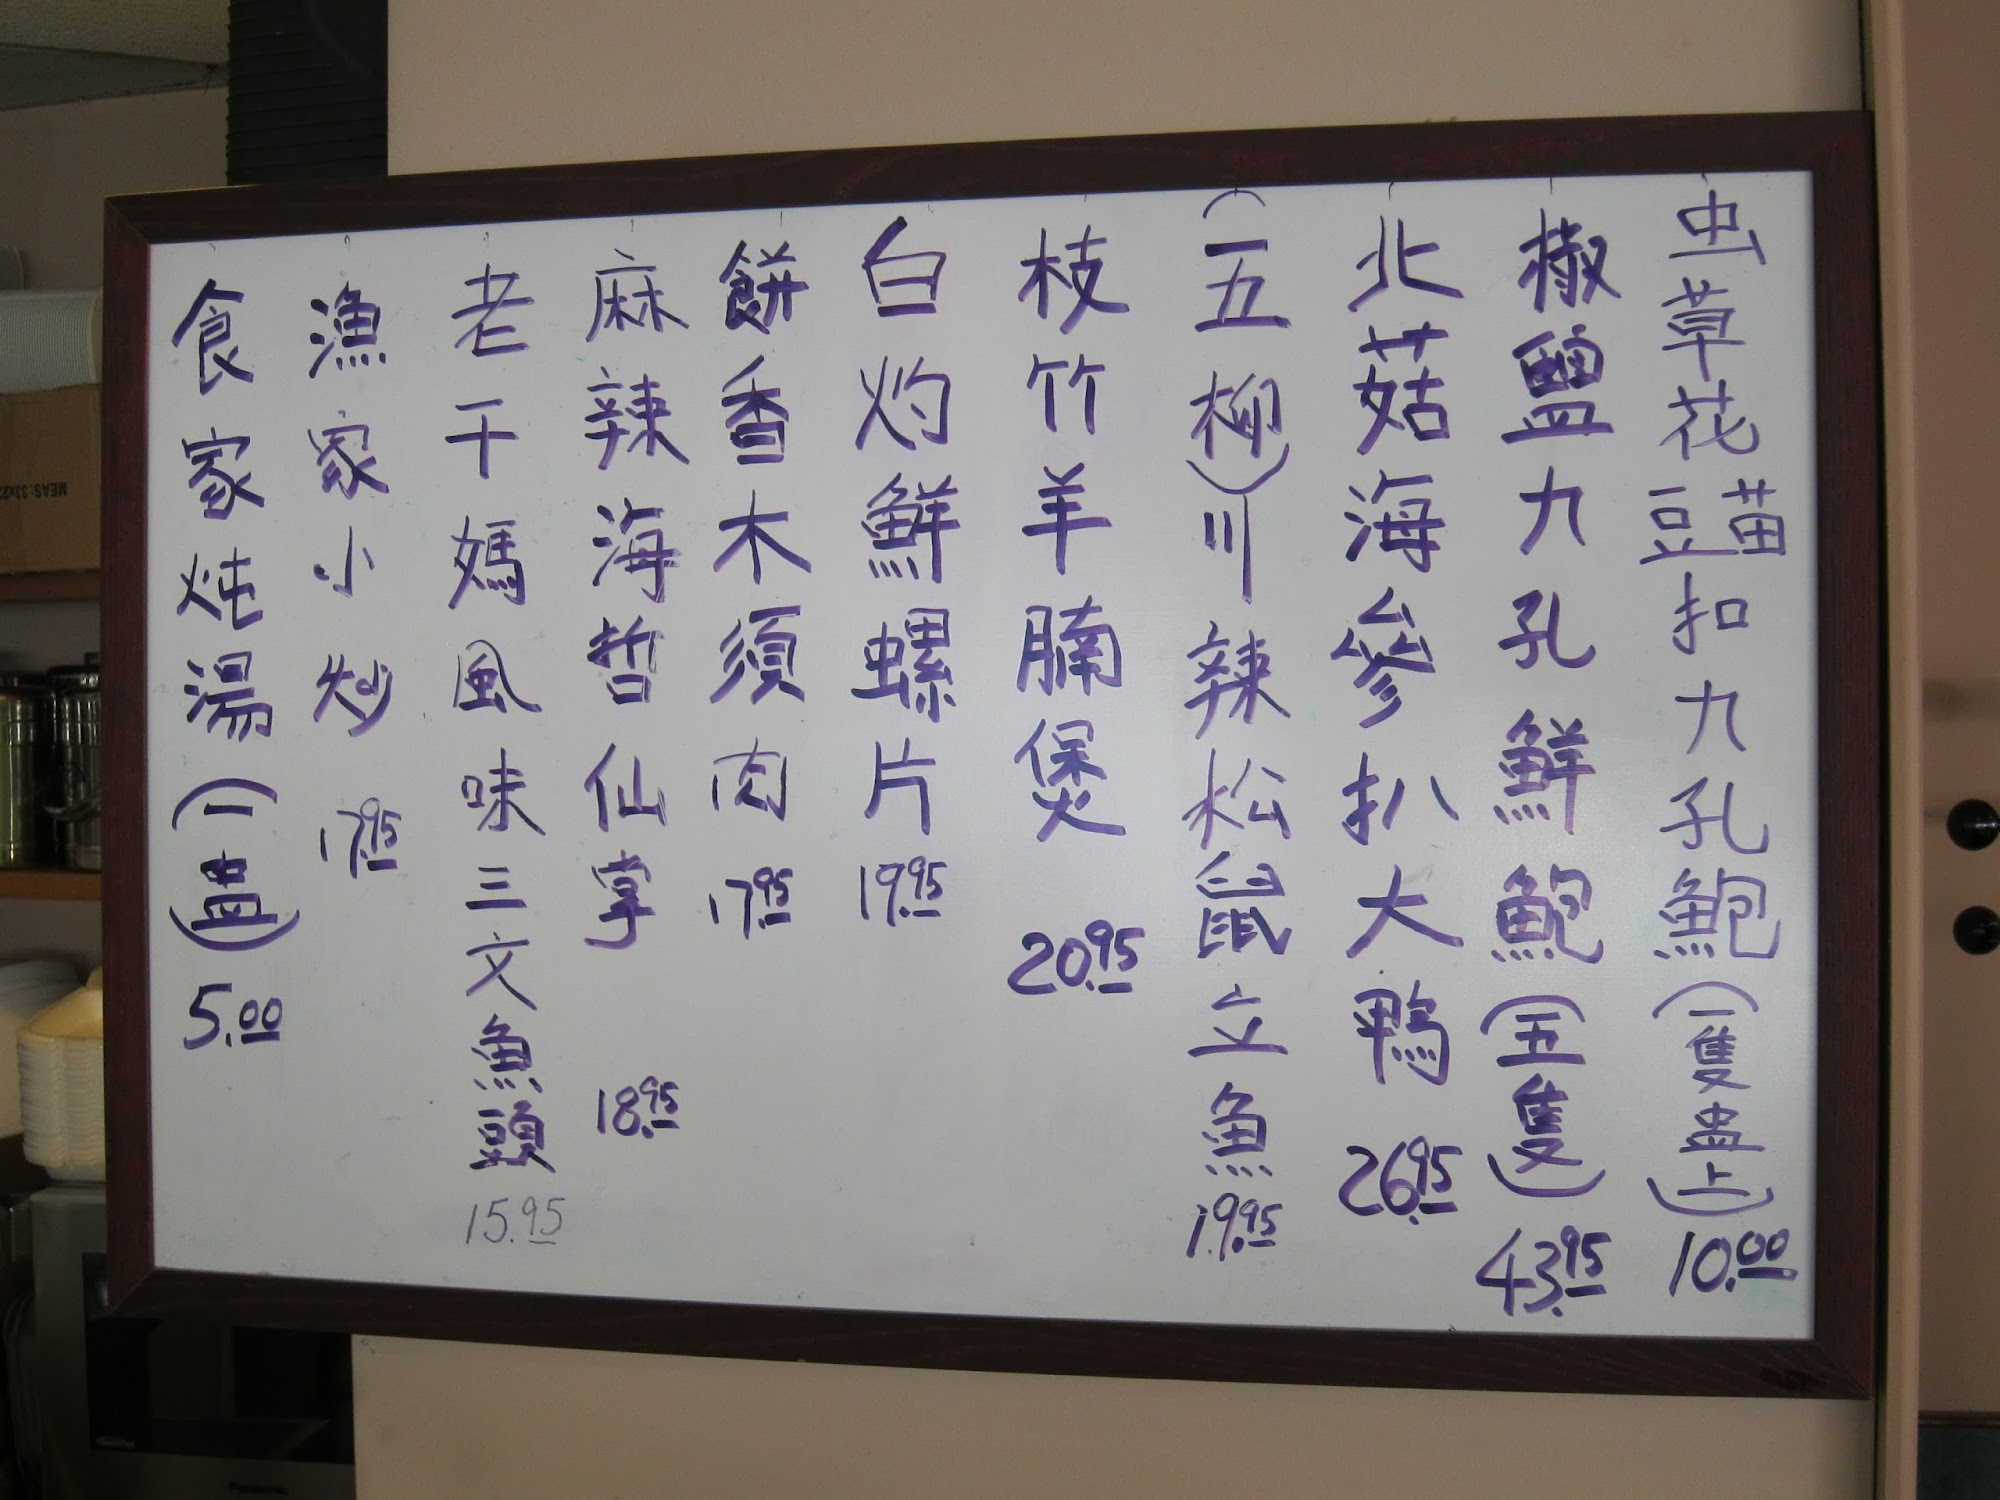 虫草花豆苗扣九孔鮑(一隻盅上)10.00
椒鹽九孔鮮鮑(五隻)43.95
北菇海參扒大鴨 26.95
(五柳)川辣松鼠立魚 19.95
枝竹羊腩煲 20.95
白灼鮮螺片 19.95
餅香木須肉 17.95
麻辣海哲仙掌 18.95
老干媽風味三文魚頭 15.95
漁家小炒 17.95
食家炖湯(一盅)5.00
MEAS:33x22
Panasonic